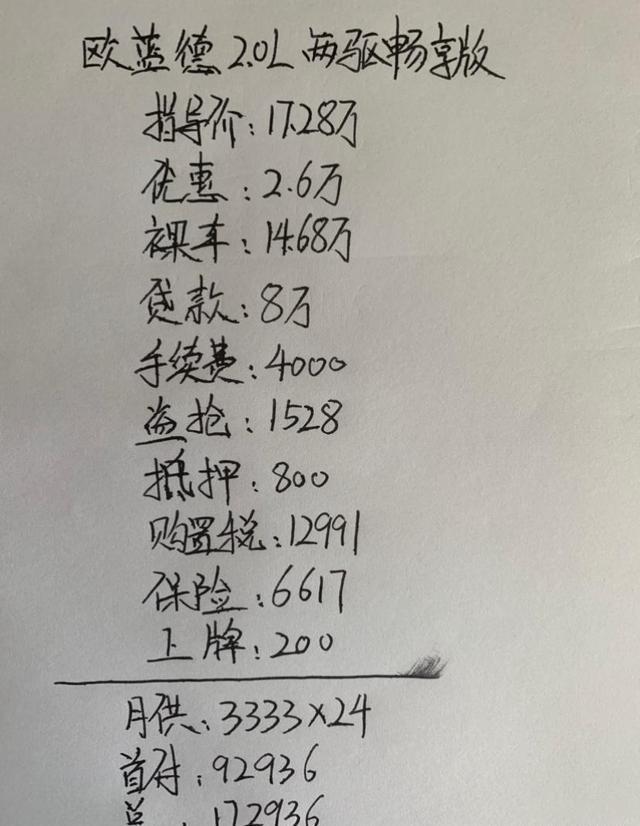 欧蓝德 2.0L 两驱畅享版
指导价：17.28万
优惠：2.6万
裸车：14.68万
贷款：8万
手续费：4000
盗抢：1528
抵押：800
购置税：12991
保险：6617
上牌：200
月供：3333×24
首付：92936
总：172936